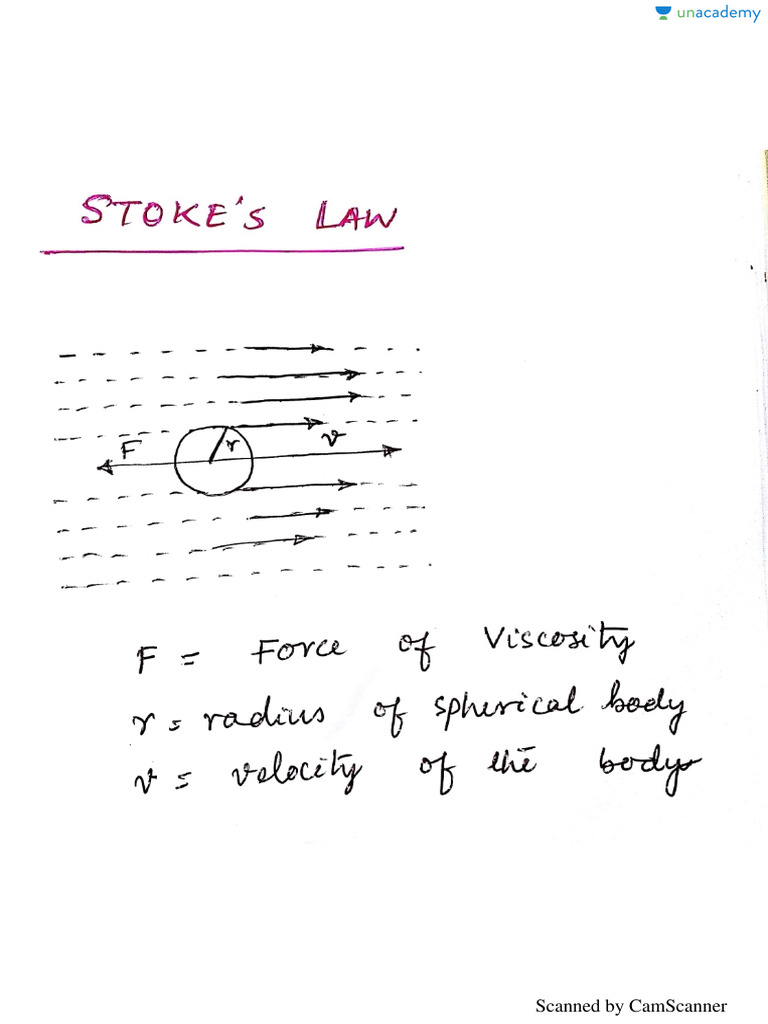 unacademy
STOKE'S LAW
F
r
v
F = Force of Viscosity
r = radius of spherical body
v = velocity of the body
Scanned by CamScanner